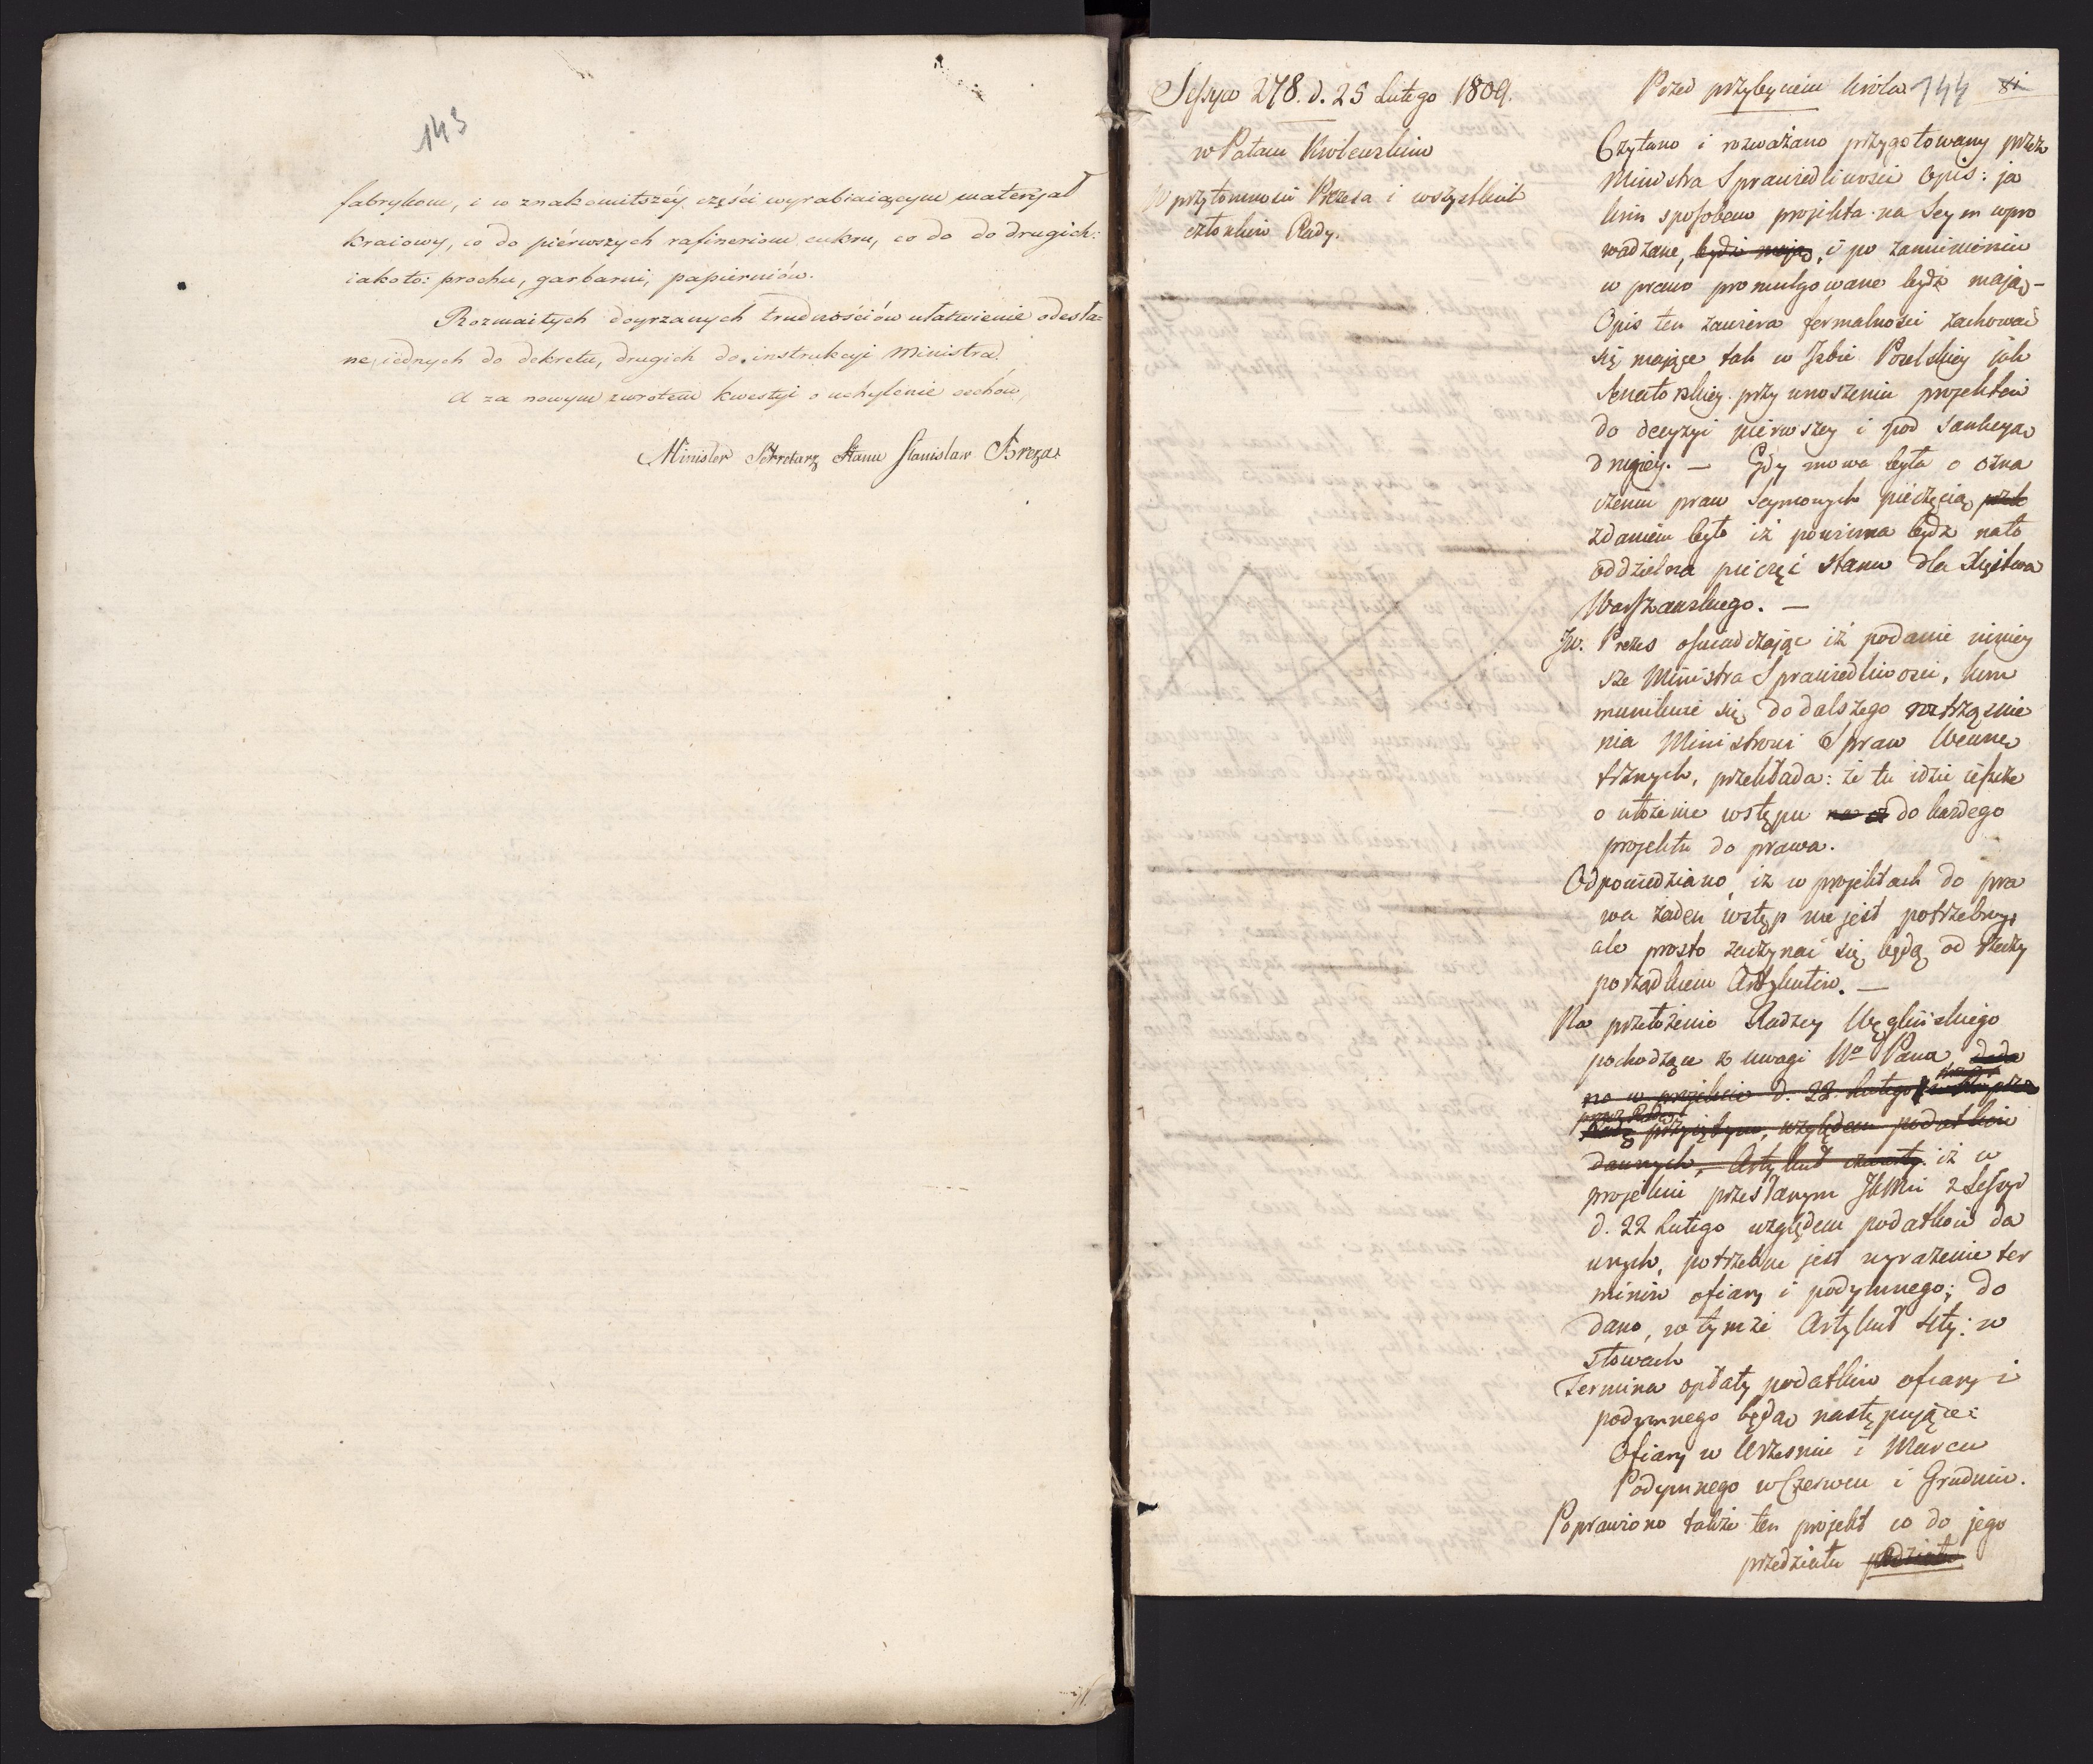 143
fabrykom, i w znakomitszéy części wyrabiaiącym materyał
kraiowy, co do piérwszych rafineriom cukru, co do do drugich:
iakoto: prochu, garbarni, papierniów.
Rozmaitych doyrzanych trudnościów ułatwienie odesła=
ne, iednych do dekretu, drugich do instrukcyi Ministra.
A za nowym zwrotem kwestyi o uchylenie cechów,
Minister Sekretarz Stanu Stanisław Breza
Sessya 278. d. 25 Lutego 1809.
w Pałacu Krolewskim
W przytomności Prezesa i wszystkich
członków Rady.
Przed przybyciem Króla 144 81
Czytano i rozważano przygotowany przez
Ministra Sprawiedliwości Opis: ja
kim sposobem projekta na Seym wpro
wadzane, będź mają, i po zamienieniu
w prawo promulgowane bydź mają –
Opis ten zawiera formalności zachować
się mające tak w Izbie Poselskiey jak
Senatorskiey przy wnoszeniu projektów
do decyzyi pierwszey i pod sankcyą
drugiey. — Gdy mowa była o ozna
czeniu praw Seymowych pieczęcią
zdaniem było iż powinna bydź na to
oddzielna pieczęć stanu dla Xięstwa
Warszawskiego. —
JW. Prezes oświadczając iż podanie niniey
sze Ministra Sprawiedliwości, kom
munikuie się do dalszego roztrząśnie
nia Ministrowi Spraw Wewnę
trznych, przekłada: że tu idzie ieszcze
o ułożenie wstępu do każdego
projektu do prawa.
Odpowiedziano, iż w projektach do pra
wa żaden wstęp nie jest potrzebny,
ale prosto zaczynać się będą od rzeczy
porządkiem Artykułów. —
Na przełożenie Radzcy Węglińskiego
pochodzące z uwagi No Pana, doda
no w projekcie d. 22. Lutego
przez Radę
przyiętym, względem podatków
dawnych, Artykuł czwarty. iż w
projekcie przesłanym JKMci z Sessyi
d. 22 Lutego względem podatków da
wnych, potrzebne jest wyrażenie ter
minów ofiary i podymnego; do
dano, w tymże Artykuł 4ty: w
słowach
Termina opłaty podatków ofiary i
podymnego będą następujące:
Ofiary w Wrześniu i Marcu
Podymnego w Czerwcu i Grudniu.
Poprawiono także ten projekt co do jego
przedziału podziału